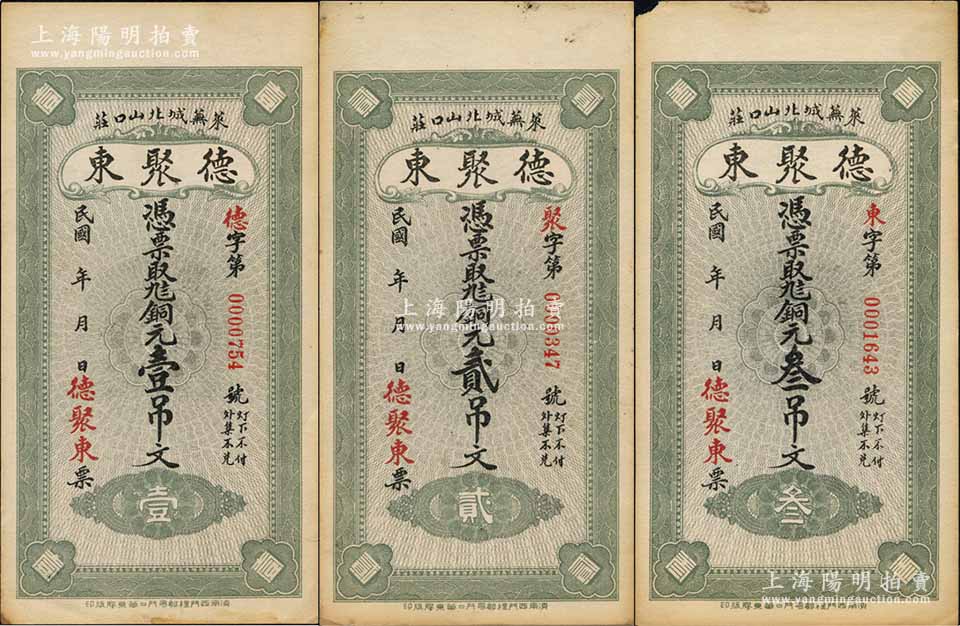 上海陽明拍賣
www.yangmingauction.com
萊蕪城北山口莊
德聚東
德字第 0000754 號
灯下不付
外集不兑
憑票取九八銅元壹吊文
民國 年 月 日德聚東票
壹
上海陽明拍賣
www.yangmingauction.com
萊蕪城北山口莊
德聚東
聚字第 0000347 號
灯下不付
外集不兑
憑票取九八銅元貳吊文
民國 年 月 日德聚東票
貳
萊蕪城北山口莊
德聚東
東字第 0001643 號
灯下不付
外集不兑
憑票取九八銅元叁吊文
民國 年 月 日德聚東票
叁
上海陽明拍賣
www.yangmingauction.com